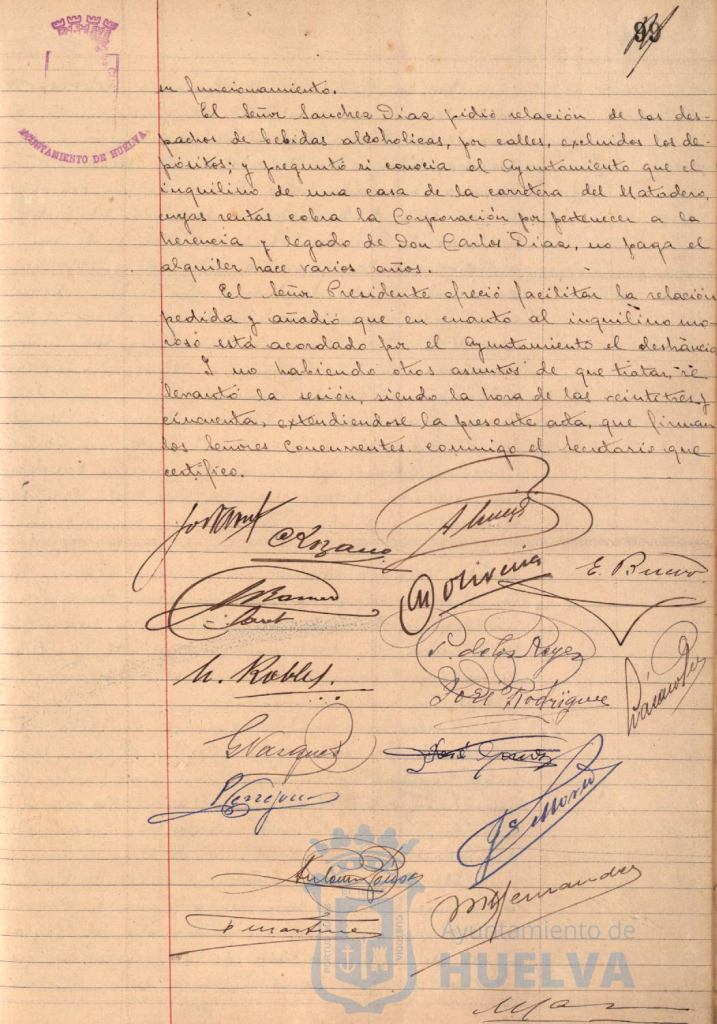 99
AYUNTAMIENTO DE HUELVA
en funcionamiento.
El Señor Sanchez Diaz pidió relación de los des-
pachos de bebidas alcoholicas, por calles, excluidos los de-
pósitos; y preguntó si conocia el Ayuntamiento que el
inquilino de una casa de la carretera del Matadero,
cuyas rentas cobra la Corporación por pertenecer a la
herencia y legado de Don Carlos Diaz, no paga el
alquiler hace varios años.
El Señor Presidente ofreció facilitar la relación
pedida y añadió que en cuanto al inquilino mo-
roso está acordado por el Ayuntamiento el deshaucio
Y no habiendo otros asuntos de que tratar, se
levantó la sesión, siendo la hora de las veintetres y
cincuenta, extendiendose la presente acta, que firman
los Señores Concurrentes conmigo el Secretario que
certifico.
Lozano
M Oliveira
E. Bueno
P. de los Reyes
M. Robles.
José Rodriguez
G Vazquez
José
Terrejon
Antonio
M Hernandez
F Martin
Ayuntamiento de
HUELVA